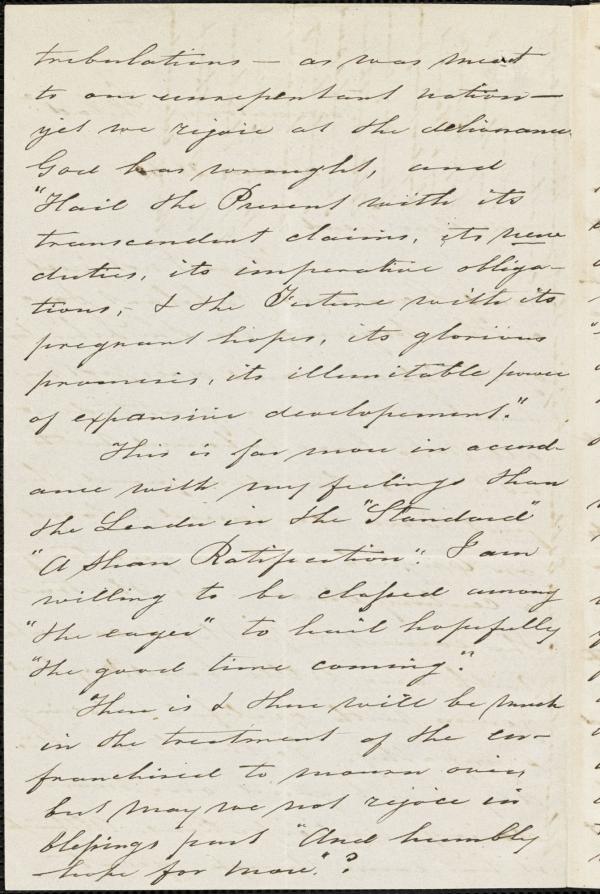 tribulations — as was meet
to our unrepentant nation —
yet we rejoice at the deliverance
God has wrought, and
"Hail the Present with its
transcendent claims, its new
duties, its imperative obliga-
tions, & the Future with its
pregnant hopes, its glorious
promises, its illimitable power
of expansive developement."
This is far more in accord-
ance with my feelings than
the Leader in the "Standard"
"A Sham Ratification". I am
willing to be classed among
"the eager" to hail hopefully
"the good time coming".
There is & there will be much
in the treatment of the en-
franchised to mourn over,
but may we not rejoice in
blessings past "And humbly
hope for more."?